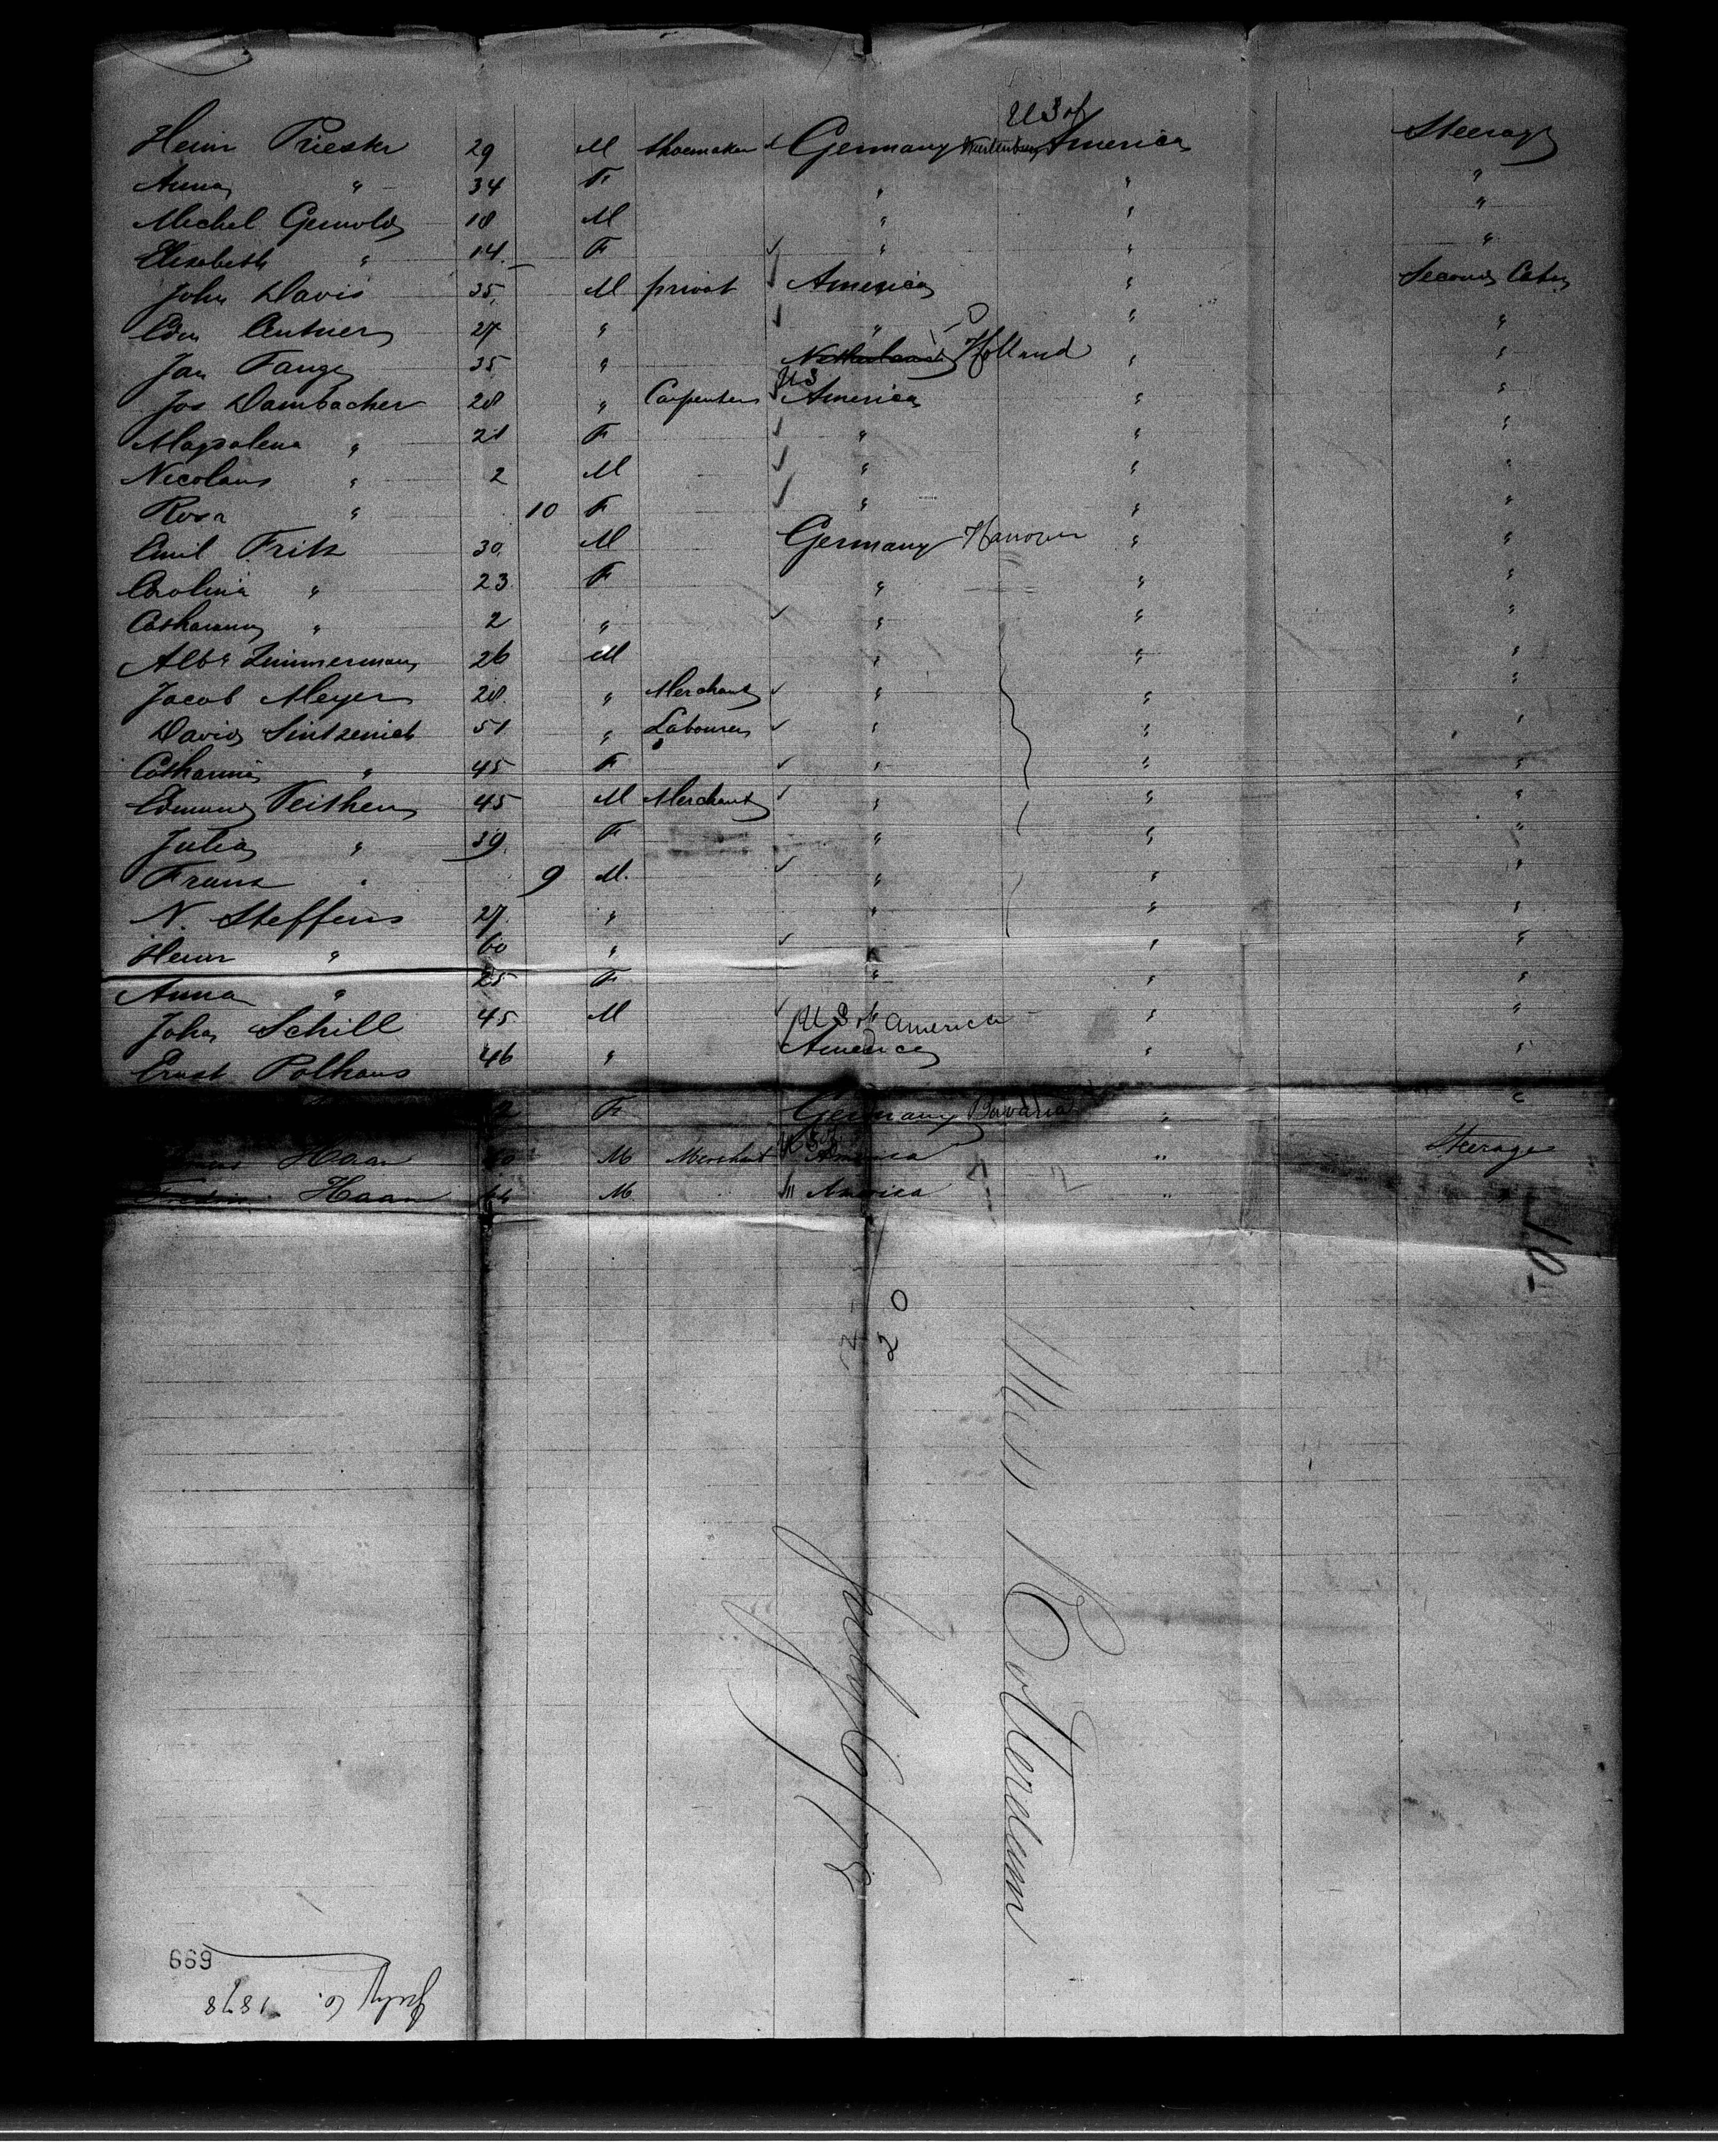 U S of
Heinr Priester 29 M Shoemaker Germany Wurtemburg America Steerage
Anna " 34 F " " "
Michel Gerwold 18 M " " "
Elisabeth " 14 F " " "
John Davis 35 M privat America " Second Cabin
Edm 27 " " " "
Jan Fange 35 " Netherlands Holland " "
U S
Jos Dambacher 28 " Carpenter America " "
Magdalena " 21 F " " "
Nicolaus " 2 M " " "
Rosa " 10 F " " "
Emil Fritz 30 M Germany Hanover " "
Carolina " 23 F " " "
Catharina " 2 " " " "
Albt Zimmermann 26 M " " "
Jacob Meyer 28 " Merchant " " "
David Sintzenich 51 " Labourer " " "
Catharina " 45 F " " "
Edmund Veithen 45 M Merchant " " "
Julia " 39 F " " "
Franz " 9 M " " "
N. Steffens 27 " " " "
Heinr " 60 " " "
Anna " 25 F " " "
John Schill 45 M U S of America " "
Ernst Polhaus 46 " America " "
2 F Germany Bavaria " "
U S of
Haan M Merchant America " Steerage
Haan M " America " "
10-
0
2
Miss Rotterdam
July 6/78
669
July 6. 1878